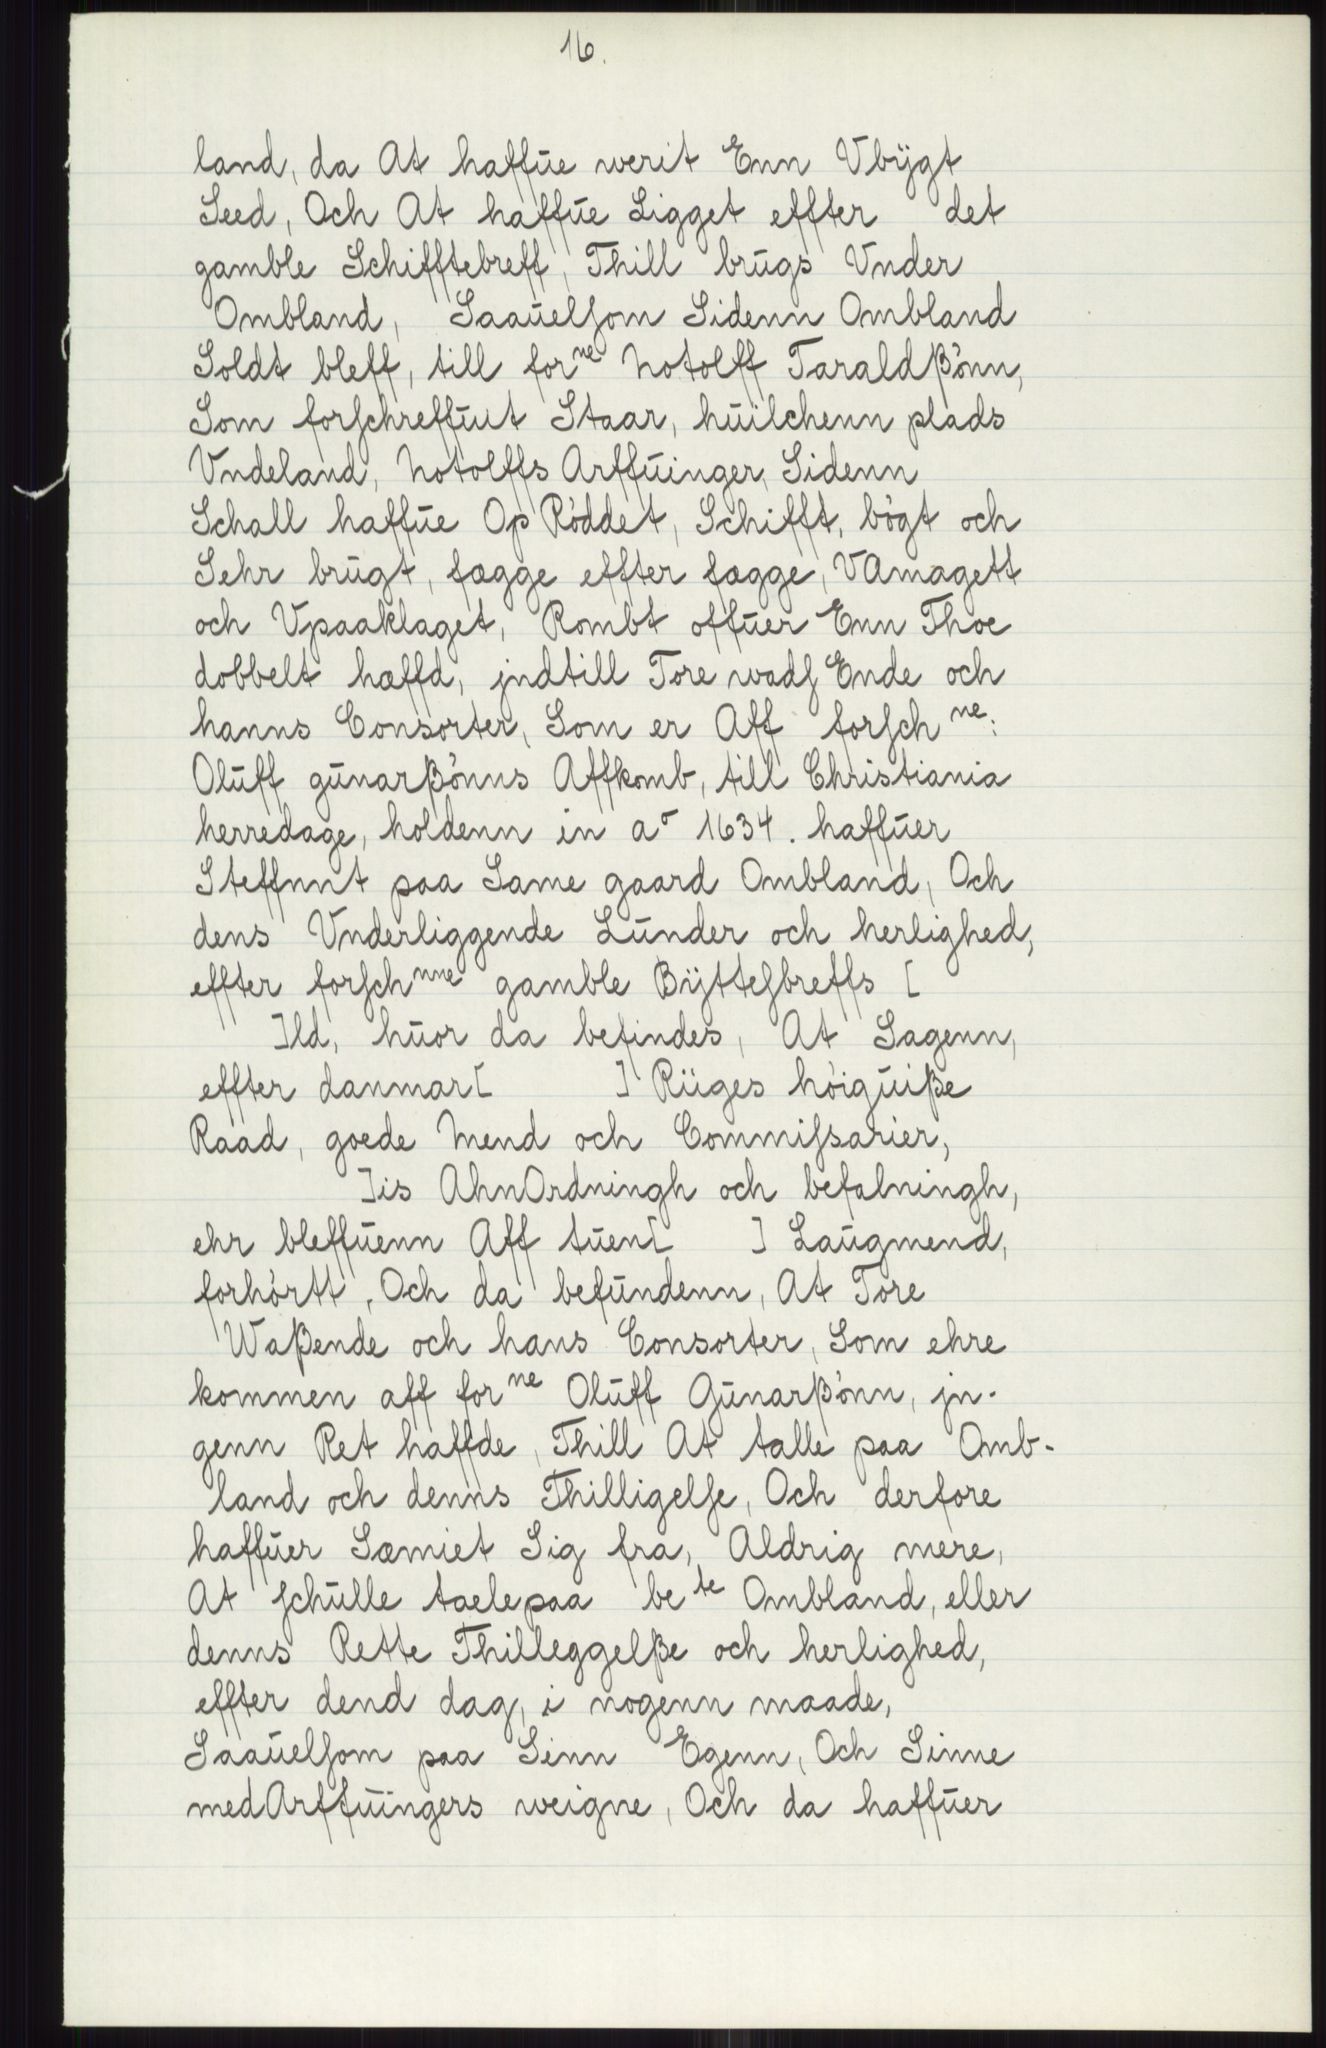 16.
land, da At haffūe werit Enn Vbÿgt
Seed, Och At haffūe Ligget effter det
gamble Schifftebreff, Thill brūgs Vnder
Ombland, Saaūelsom Sidenn Ombland
Soldt bleff, till for ne Notolff Taraldßönn,
Som forschreffuit Staar, hūilchenn plads
Vndeland, Notolffs Arffūinger, Sidenn
Schall haffūe Op Röddet, Schifft, bögt och
Sehr brūgt, fægge effter fægge, VAmagett
och Vpaaklaget, Rombt offūer Enn Thoe
dobbelt hæffd, jndtill Tore wads Ende och
hanns Consorter, Som er Aff forsch ne:
Olūff gūnarßönns Affkomb, till Christiania
herredage, holdenn in ao 1634. haffūer
Steffnnt paa Same gaard Ombland, Och
dens Vnderliggende Lūnder och herlighed,
effter forsch nne gamble Bÿttesbreffs [
]ld, hūor da befindes, At Sagenn,
effter danmar[ ] Riiges höigūiße
Raad, goede Mend och Commissarier,
]is AhnOrdningh och befalningh,
ehr bleffūenn Aff tūen[ ] Laūgmend,
forhörtt, Och da befūndenn, At Tore
Waßende och hans Consorter, Som ehre
kommen aff for ne Olūff Gūnarßönn, jn-
genn Ret haffde, Thill At talle paa Omb-
land och denns Thilligelse, Och derfore
haffūer Sæmiet Sig fra, Aldrig mere,
At schūlle taelepaa be te Ombland, eller
denns Rette Thilleggelße och herlighed,
effter dend dag, i nogenn maade,
Saaūelsom paa Sinn Egenn, Och Sinne
medArffūingers weigne, Och da haffūer